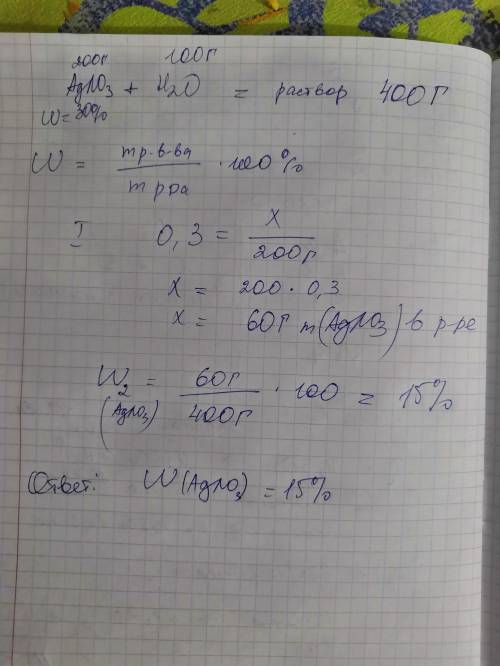 200г 100г
AgNO3 + H2O = раствор 400г
W=30%
W = mр.в-ва / mр.ра · 100%
I 0,3 = X / 200г
X = 200 · 0,3
X = 60г m(AgNO3) в р-ре
W2 (AgNO3) = 60г / 400г · 100 = 15%
Ответ: W(AgNO3) = 15%